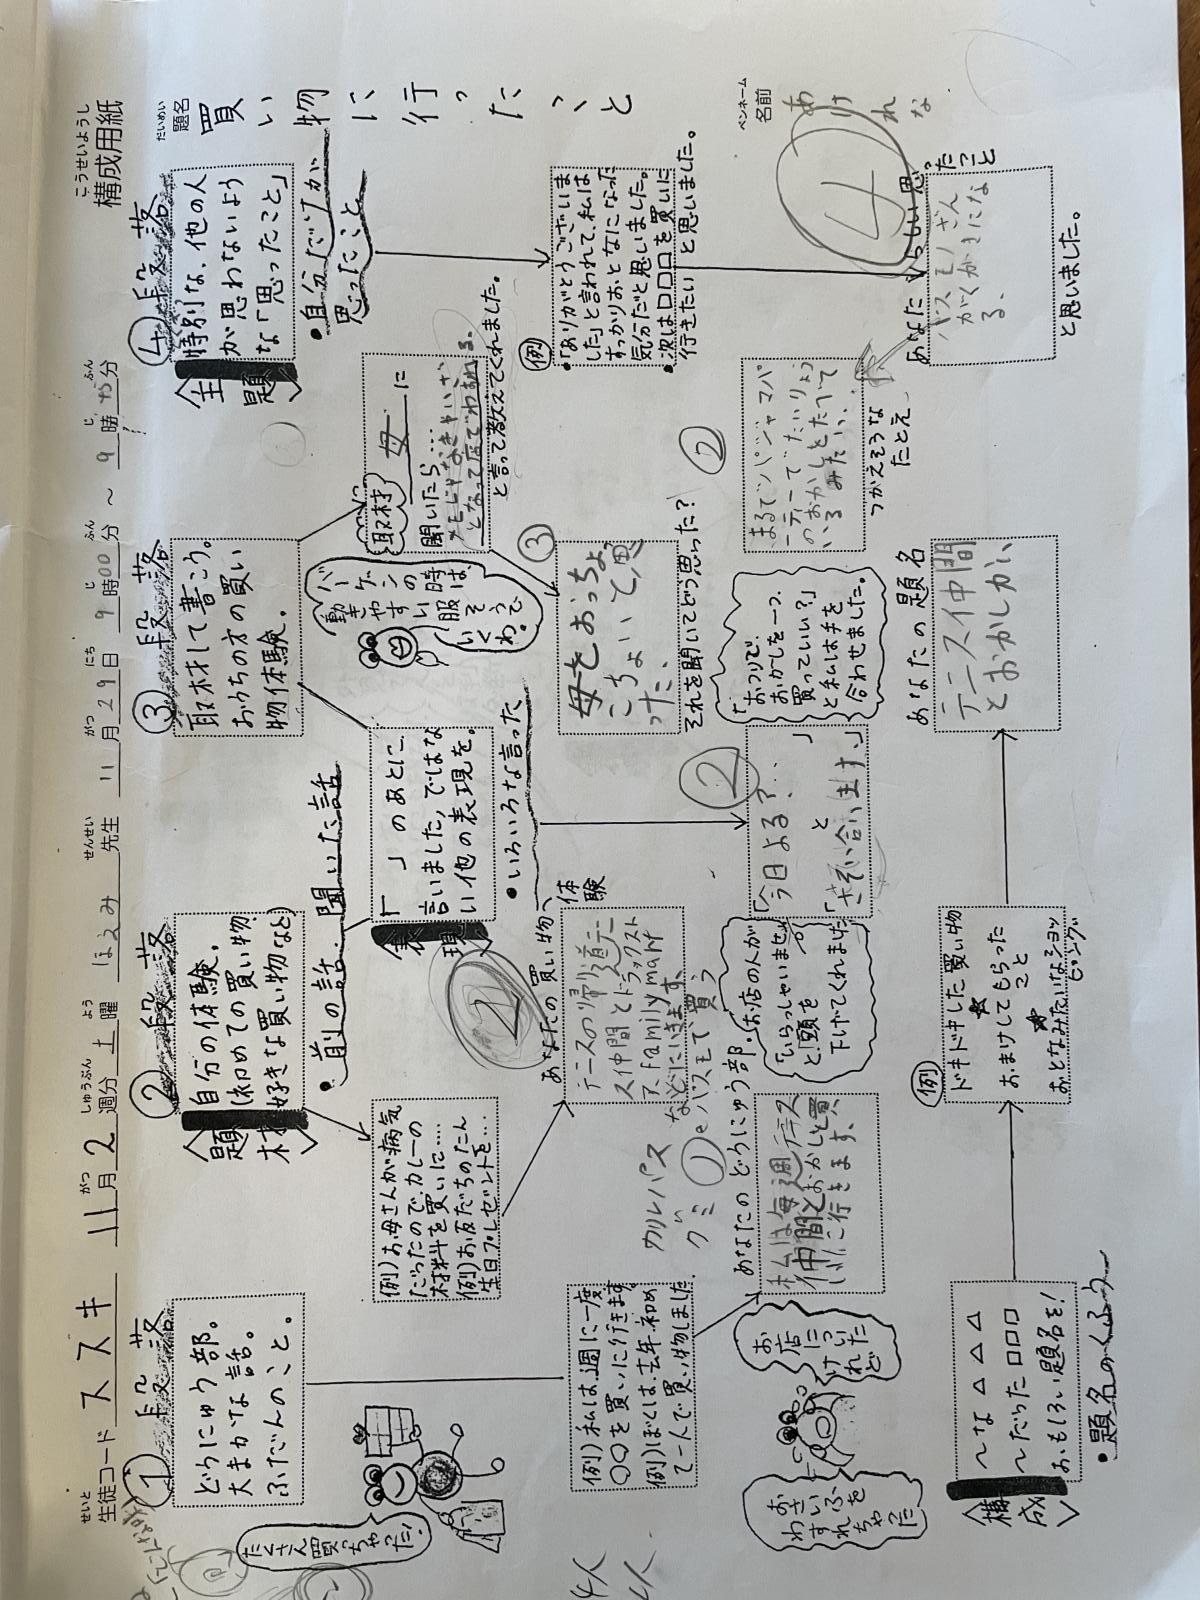 構成用紙
こうせいようし
生徒コード ススキ 11月2週分 土曜 はるみ先生 11月29日 9時00分～9時45分
題名
だいめい
買い物に行ったこと
ペンネーム
名前
あけれな
①段落
どうにゅう部。
大まかな話。
ふだんのこと。
たくさん買っちゃった!
例)私は、週に一度
○○を買いに行きます
例)ぼくは、去年、初め
て一人で買い物しました
お店についたけれど
おさいふをわすれちゃった
あなたのどうにゅう部。
私は毎週テニス
仲間とおかしを買
いに行きます。
②段落
〈題材〉
自分の体験。
(初めての買い物、
好きな買い物など)
・前の話、聞いた話
例)お母さんが病気
だったので、カレーの
材料を買いに‥‥
例)お友だちのたん
生日プレゼントを…
あなたの買い物体験
テニスの帰り道テニ
ス仲間とドラッグスト
ア、Family mart
などにいきます。
パスモで買う
カリレパス
グミ
①
②
〈表現〉
「　」のあとに、
言いました、ではな
い他の表現を。
・いろいろな言った
お店の人が
「いらっしゃいませ」
と頭を
下げてくれました
「今日よる?…　」
と
「さそい合います。」
「おつりで、
おかしを一つ、
買っていい?」
と私は手を
合わせました。
②
③段落
取材して書こう。
おうちの方の買い
物体験。
バーゲンの時は、
動きやすい服で
いくそうで
わ。
取材
母に
聞いたら‥‥
と言って教えてくれました。
③
母をおっちょ
こちょいと思
った、
それを聞いてどう思った?
②
まるでパジャマパ
ーティーで
のおかしをたべて
いるみたい、
つかえそうな
たとえ
④段落
〈主題〉
特別な、他の人
が思わないよう
な「思ったこと」
・自分だけが
思ったこと
例
・「ありがとうございま
した」と言われて、私は
すっかりおとなになった
気分だと思いました。
・次は□□□を買いに
行きたいと思いました。
④
あなたらしい思ったこと
パスモ/ざん
がくがきにな
る、
と思いました。
〈構成〉
～な△△△
～だった□□□
おもしろい題名を!
・題名のくふう
例
ドキドキした買い物
おまけしてもらった
こと
おとなみたいなショッ
ピング
あなたの題名
テニス仲間
とおかしかい
4人